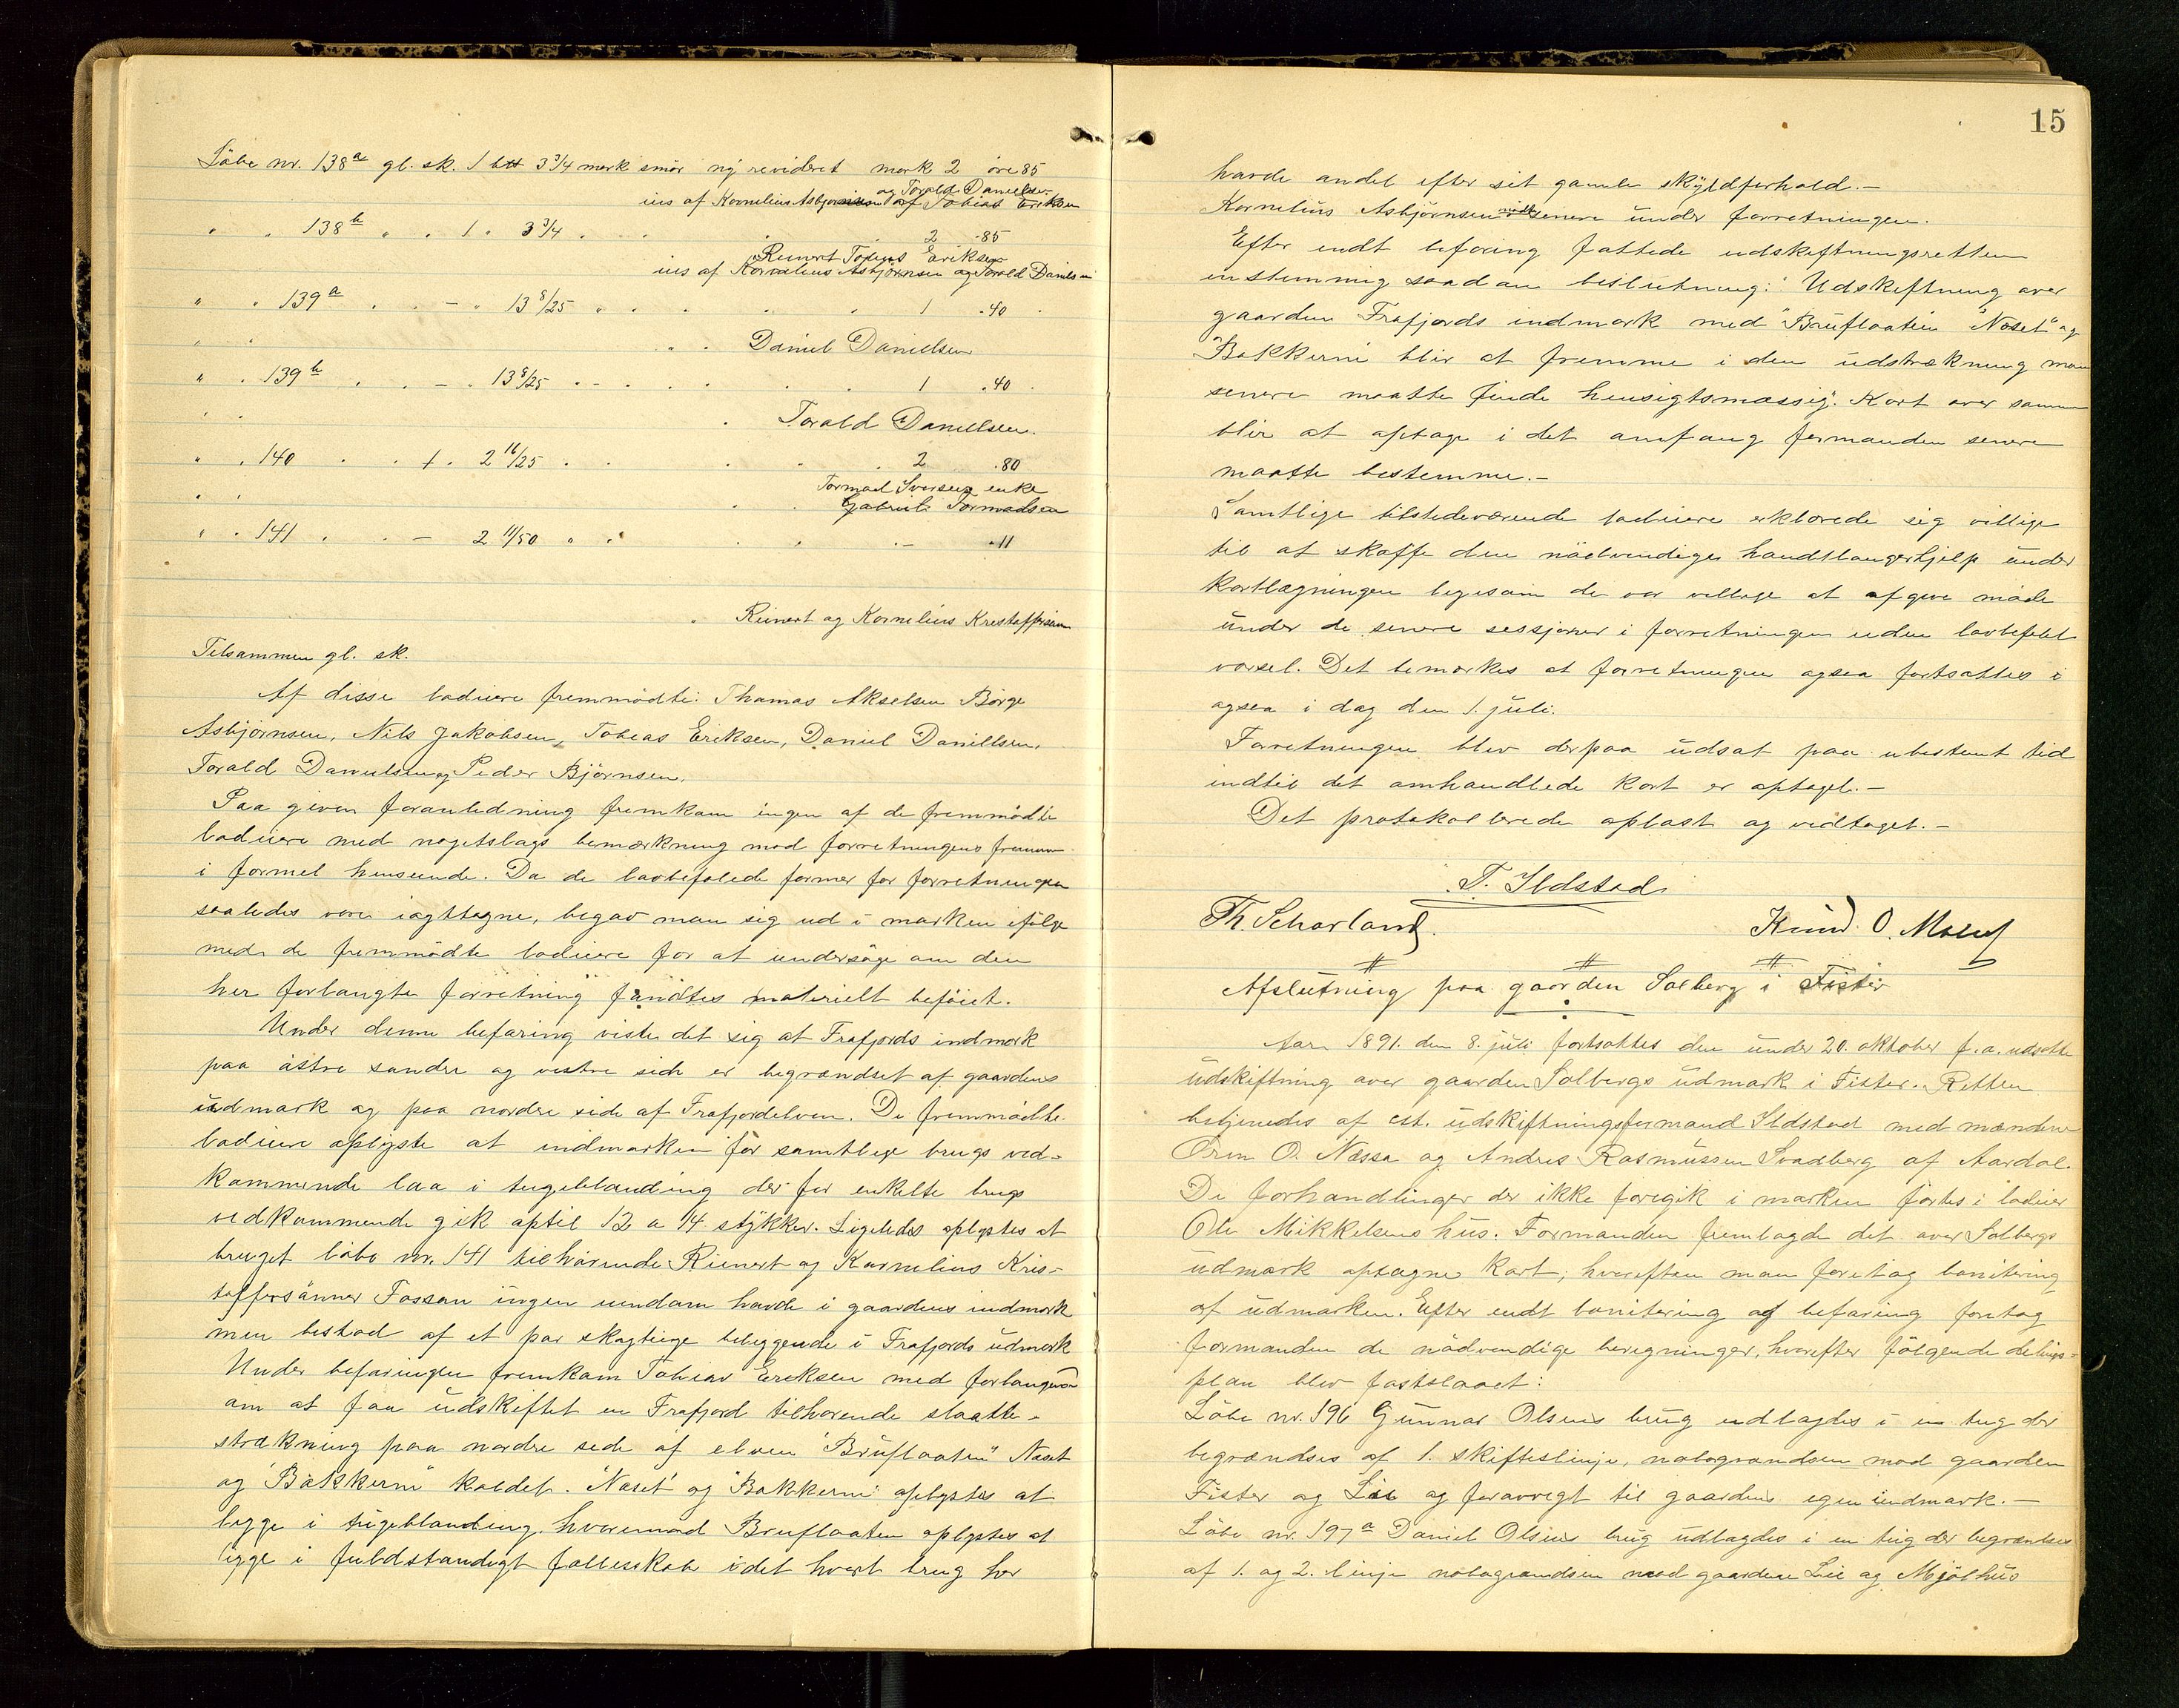 Löbe nr. 138a gl. sk. 1 3 3/4 mark smör ny revideret mark 2 öre 85
og Torald Danielsen
eies af Kornelius Asbjørnsen af Tobias Eriksen
" " 138b " " 1 " 3 3/4 " " " " 2 " 85
Reinert Tobias Eriksen
eies af Kornelius Asbjørnsen og Torald Danielsen
" " 139a " " - " 13 8/25 " " " " 1 " 40
" " " " Daniel Danielsen
" " 139b " " - " 13 8/25 " " " " 1 " 40
" " " Torald Danielsen.
" " 140 " " 1 " 2 16/25 " " " " 2 " 80
Tormod Iversens enke
" " " " Gabriel Tormodsen
" " 141 " " - 2 11/50 " " " " - " 11
" Reinert og Kornelius Kristoffersen
Tilsammen gl. sk.
Af disse lodeiere fremmödte: Thomas Akselsen Börge
Asbjörnsen, Nils Jakobsen, Tobias Eriksen, Daniel Daniellsen,
Torald Danielsen og Peder Björnsen.
Paa given foranledning fremkom ingen af de fremmödte
lodeiere med nogetslags bemærkning mod forretningens fremme
i formel henseende. Da de lovbefalede former for forretningen
saaledes vare iagttagne, begav man sig ud i marken ifölge
med de fremmödte lodeiere for at undersöge om den
her forlangte forretning fandtes materielt beföiet.
Under denne befaring viste det sig at Frafjords indmark
paa östre söndre og vestre side er begrændset af gaardens
udmark og paa nordre side af Frafjordelven. De fremmödte
lodeiere oplyste at indmarken for samtlige brugs ved-
kommende laa i teigeblanding der for enkelte brugs
vedkommende gik optil 12 a 14 stykker. Ligeledes oplystes at
bruget löbe nr. 141 tilhörende Reinert og Kornelius Kris-
toffersönner Fossan ingen eiendom havde i gaardens indmark
men bestod af et par skogteige beliggende i Frafjords udmark
Under befaringen fremkom Tobias Eriksen med forlangende
om at faa udskiftet en Frafjord tilhörende slaatte-
strækning paa nordre side af elven "Bruflaaten" Næset
og "Bakkerne" kaldet. "Næset" og "Bakkerne" oplystes at
ligge i teigeblanding, hvorimod Bruflaaten oplystes at
ligge i fuldstændigt fællesskab idet hvert brug her
15
havde andel efter sit gamle skyldforhold.-
Kornelius Asbjörnsen mödte senere under forretningen.
Efter endt befaring fattede udskiftningsretten
enstemmig saadan beslutning: Udskiftning over
gaarden Frafjords indmark med "Bruflaaten" "Næset" og
Bakkerne blir at fremme i den udstrækning man
senere maatte finde hensigtsmæssig. Kort over samme
blir at optage i det omfang formanden senere
maatte bestemme.-
Samtlige tilstedeværende lodeiere erklærede sig villige
til at skaffe den nödvendige haandtlangerhjelp under
kortlægningen ligesom de var villige at afgive möde
under de senere sessjoner i forretningen uden lovbefalt
varsel. Det bemærkes at forretningen ogsaa fortsattes i
ogsaa i dag den 1. juli.
Forretningen blev derpaa udsat paa ubestemt tid
indtil det omhandlede kort er optaget.-
Det protokollerede oplæst og vedtaget.-
T. Ildstad
Th. Scharland. Knud O.
Afslutning paa gaarden Solberg i Fister
Aar 1891. den 8. juli fortsattes den under 20. oktober f. a. udsatte
udskiftning over gaarden Solbergs udmark i Fister. Retten
betjenedes af cst. udskiftningsformand Ildstad med mændene
Orm O. Næssa og Andres Rasmussen Svadberg af Aardal.
De forhandlinger der ikke foregik i marken førtes i lodeier
Ole Mikkelsens hus. Formanden fremlagde det over Solbergs
udmark optagne kart, hvorefter man foretog bonitering
af udmarken. Efter endt bonitering og befaring foretog
formanden de nödvendige beregninger, hvorefter fölgende delings-
plan blev fastslaaet:
Löbe nr. 196 Gunnar Olsens brug udlagdes i en teig der
begrændses af 1. skifteslinje, nabogrændsen mod gaarden
Fister og Lie og foravrigt til gaardens egen indmark.-
Löbe nr. 197a Daniel Olsens brug udlagdes i en teig der begrændses
af 1. og 2. linje nabogrændsen mod gaardene Lie og Mjölhus